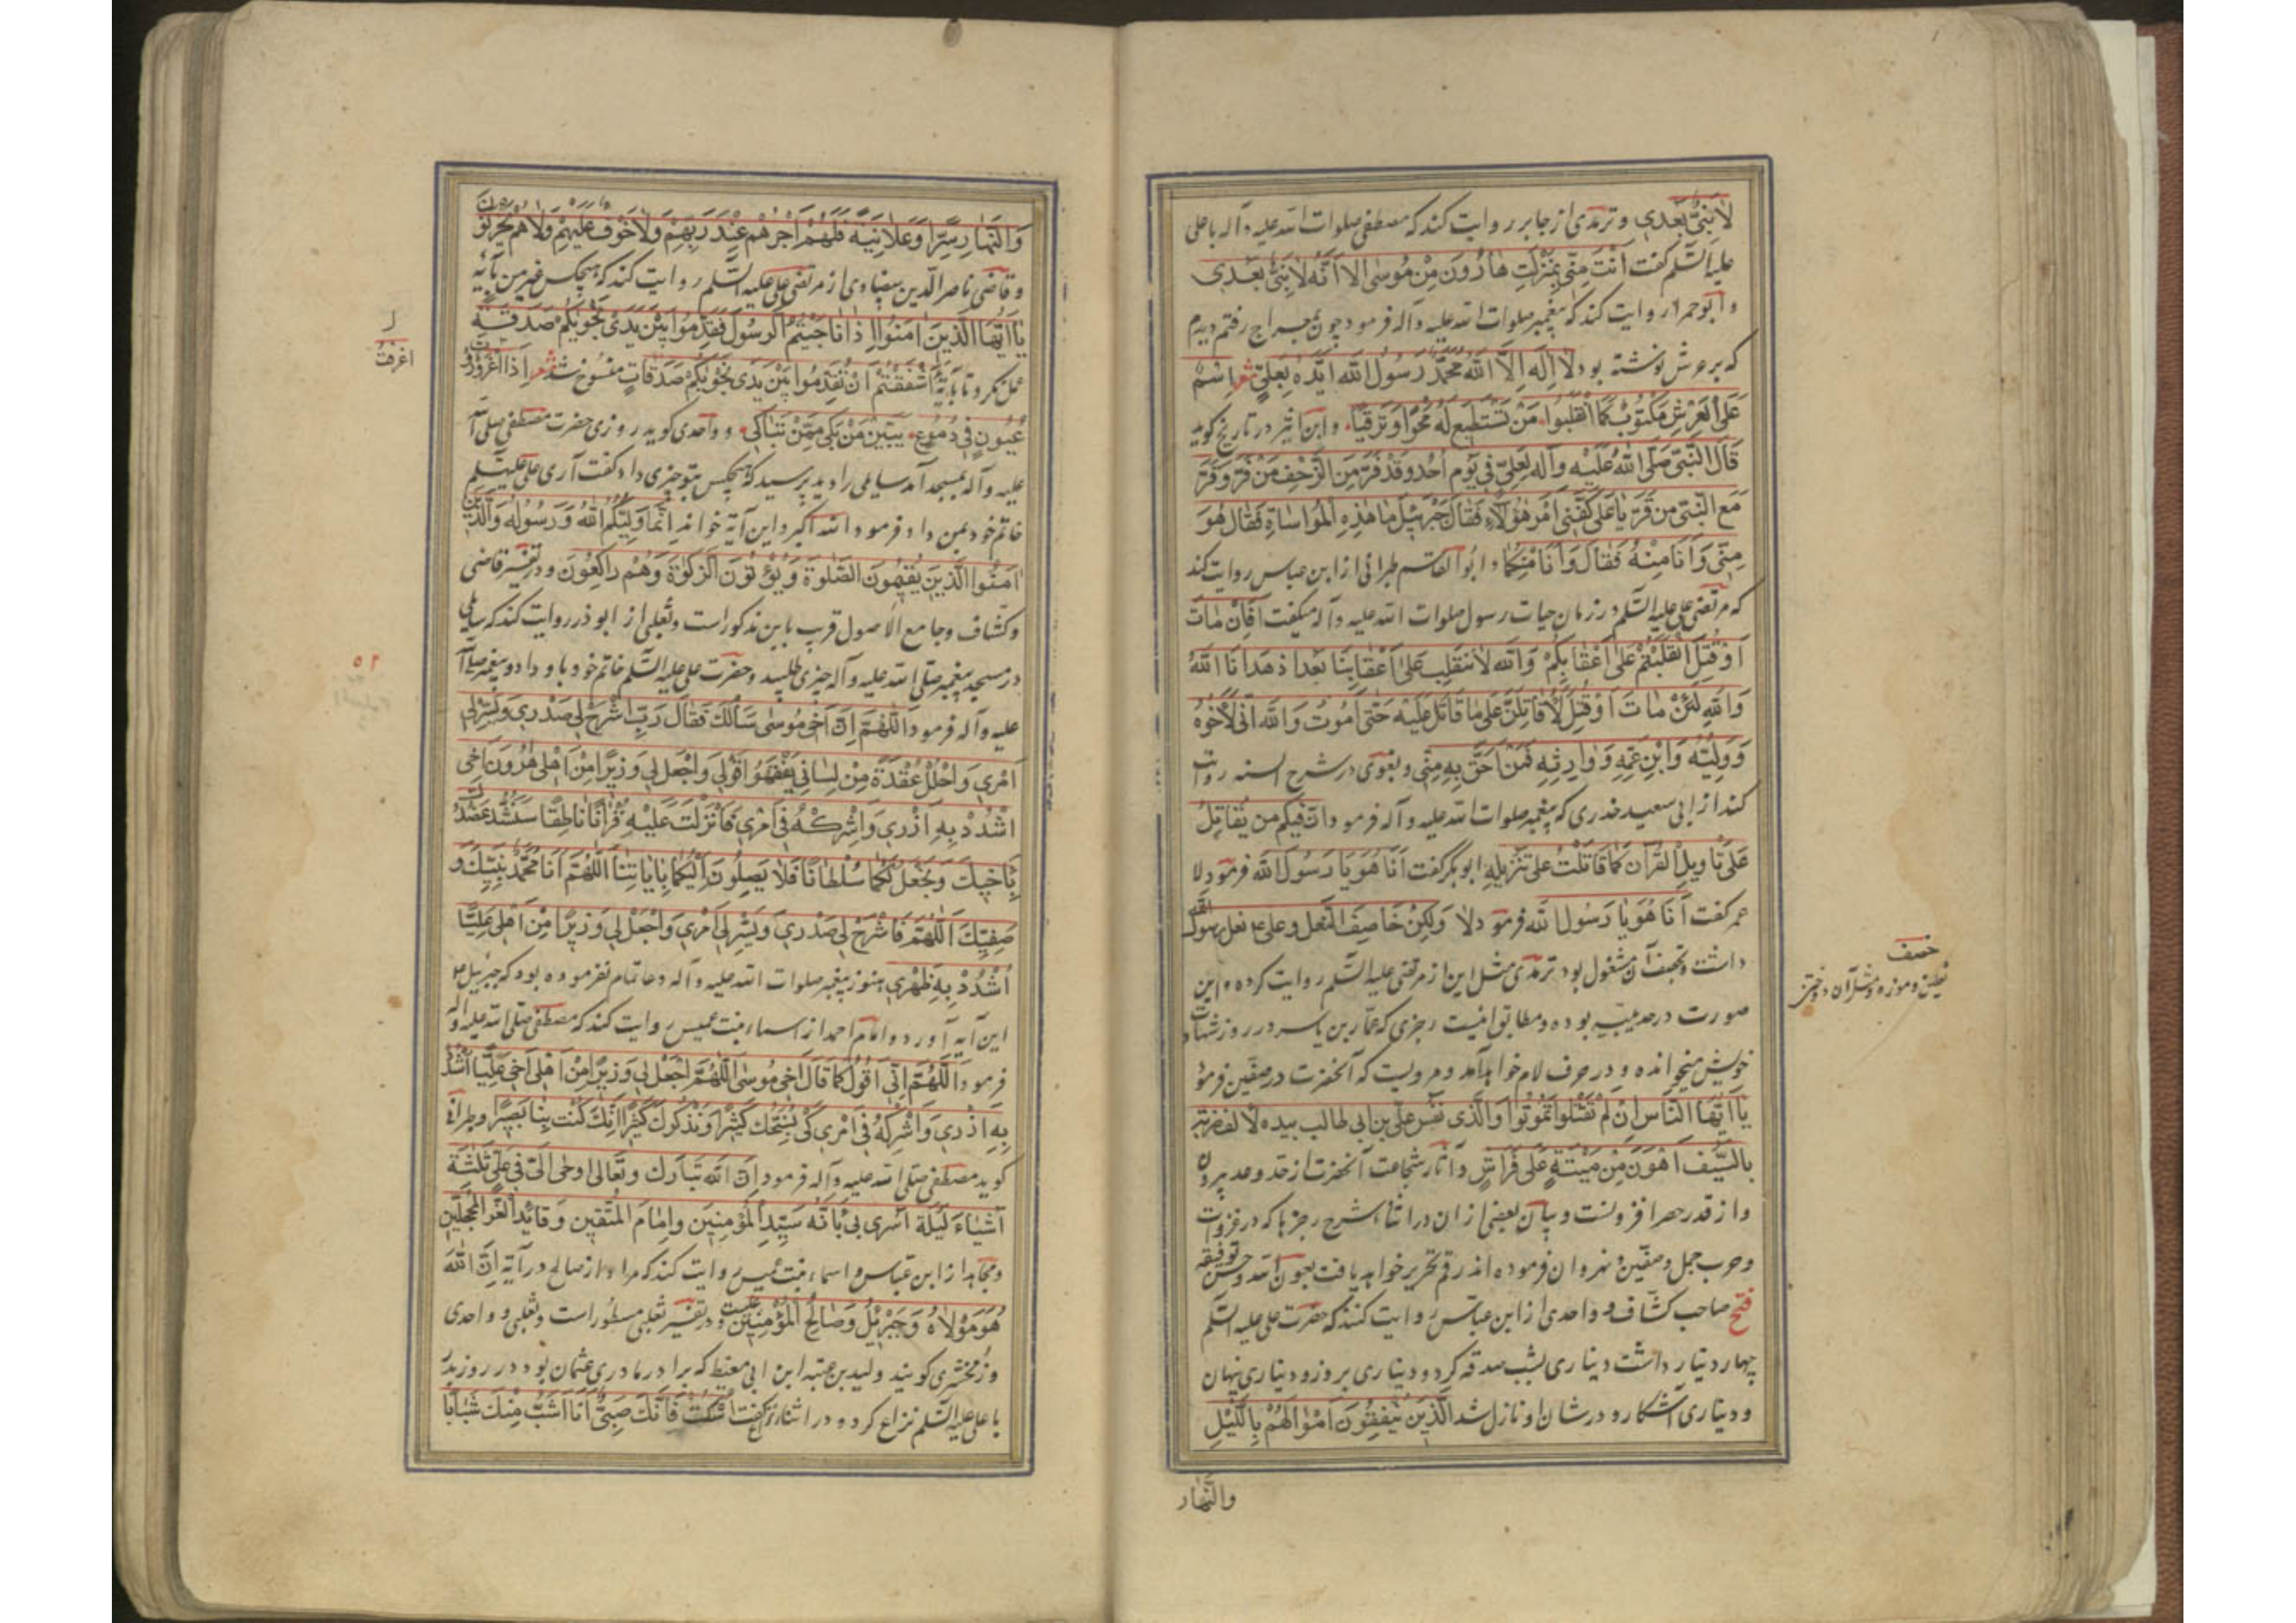 لا نبیّ بعدی و ترمذی از جابر روایت کند که مصطفی صلوات الله علیه و آله با علی
علیه السّلم کفت اَنْتَ مِنّی بِمَنْزِلَتِ هارُونَ مِنْ مُوسٰی اِلا اَنَّهُ لاٰ نَبِیَّ بَعْدی
و ابو حمرا روایت کند که پیغمبر صلوات الله علیه و آله فرمود چون بمعراج رفتم دیدم
که بر عرش نوشته بود لاٰ اِلٰهَ اِلَّا اللهُ مُحَمَّدٌ رَسُولُ الله اَیَّدَهُ بِعَلِیٍّ شعر اِسْمٌ
عَلَی الْعَرْشِ مَکْتُوبٌ کَمٰا انْقَلَبُوا مَنْ تَسْتَطیعُ لَهُ مَحْوًا وَ تَرْقیٰا و ابن اثیر در تاریخ کوید
قٰالَ النَّبِیّ صَلَّی اللهُ عَلَیْهِ وَآلِه لِعَلِیٍّ فی یَوْمِ اُحُدٍ وَقَدْ فَرَّ مِنَ الزَّحْفِ مَنْ فَرَّ وَ قَرَّ
مَعَ النَّبِیّ مِن قَرَّ یٰا عَلی کَفِّنی اَمْرَ هٰؤُلٰاءِ فَقٰالَ جَبْرَئیلُ مٰا هٰذِهِ الْمُوٰاسٰاةِ فَقٰالَ هُوَ
مِنّی وَ اَنَا مِنْهُ فَقٰالَ وَ اَنَا مِنْکُمٰا و ابو القاسم طبرانی از ابن عباس روایت کند
که مرتضی علی علیه السّلم در زمان حیات رسول صلوات الله علیه و آله میکفت اَفَاِنْ مٰاتَ
اَوْ قُتِلَ انْقَلَبْتُمْ عَلٰی اَعْقٰابِکُمْ وَالله لاٰ نَنْقَلِبُ عَلٰی اَعْقٰابِنٰا بَعْدَ اِذْ هَدٰانَا اللهُ
وَاللهِ لَئِنْ مٰاتَ اَوْ قُتِلَ لَاُقٰاتِلَنَّ عَلیٰ مٰا قٰاتَلَ عَلَیْهِ حَتّٰی اَمُوتَ وَ اللهِ اِنّی لَاَخُوهُ
وَ وَلِیُّهُ وَابْنُ عَمِّهِ وَ وٰارِثُهُ فَمَنْ اَحَقُّ بِهِ مِنّی و بغوی در شرح السنه روایت
کند از ابی سعید خدری که پیغمبر صلوات الله علیه و آله فرمود اِنَّ فیکُم من یُقٰاتِلُ
عَلیٰ تَأویلِ الْقُرْآن کَمٰا قٰاتَلْتُ عَلیٰ تَنْزیلِهِ ابوبکر کفت اَنَا هُوَ یٰا رَسُولَ الله فرمود لا
عمر کفت اَنَا هُوَ یٰا رَسُولَ الله فرمود لاٰ وَلٰکِنْ خٰاصِفُ النَّعل و علی ع نعل رسول الله
داشت و بخصف آن مشغول بود ترمذی مثل این از مرتضی علیه السّلم روایت کرده و این
صورت در حدیبیه بوده و مطابق اینست رجزی که عمّار بن یاسر در روز شهادت
خویش میخوانده و در حرف لام خواهد آمد و مرویست که آنحضرت در صفّین فرمود
یٰا اَیُّهَا النّٰاسُ اِنْ لَمْ تُقْتَلُوا تَمُوتُوا وَالَّذی نَفْسُ عَلِیّ بْنِ ابی طٰالب بِیَدِه لاَلْفُ ضَرْبَةٍ
بِالسَّیْفِ اَهْوَنُ مِنْ مِیْتَةٍ عَلٰی فِرٰاشٍ و آثار شجاعت آنحضرت از حدّ و عد بیرون
و از قدر حصر افزونست و بیان بعضی از ان در اثناء شرح رجزها که در غزوات
و حرب جمل و صفّین و نهروان فرموده اند رقم تحریر خواهد یافت بعون الله و حسن توفیقه
فتح صاحب کشّاف و واحدی از ابن عبّاس روایت کنند که حضرت علی علیه السّلم
چهار دینار داشت دیناری بشب صدقه کرد و دیناری بروز و دیناری نهان
و دیناری آشکارا و در شان او نازل شد اَلَّذینَ یُنْفِقُونَ اَمْوٰالَهُمْ بِاللَّیْلِ
والنّهار
خصف
نعلین و موزه و مثل آن دوختن
وَالنَّهٰارِ سِرًّا وَ عَلاٰنِیَةً فَلَهُمْ اَجْرُهُمْ عِنْدَ رَبِّهِمْ وَلاٰ خَوْفٌ عَلَیْهِمْ وَلاٰ هُمْ یَحْزَنُونَ
و قاضی ناصر الدّین بیضاوی از مرتضی علی علیه السّلم روایت کند که هیچکس غیر من بآیهٔ
یٰا اَیُّهَا الَّذینَ اٰمَنُوا اِذٰا نٰاجَیْتُمُ الرَّسُولَ فَقَدِّمُوا بَیْنَ یَدَیْ نَجْوٰیکُمْ صَدَقَةً
عمل نکرد تا بآیهٔ ءَاَشْفَقْتُمْ اَنْ تُقَدِّمُوا بَیْنَ یَدَیْ نَجْوٰیکُمْ صَدَقٰاتٍ منسوخ شد شعر اِذَا اغْرَوْرَقَتْ
عُیُونٌ فی دُمُوعٍ تَبَیَّنَ مَنْ بَکیٰ مِمَّنْ تَبٰاکیٰ و واحدی کوید روزی حضرت مصطفی صلی الله
علیه و آله بمسجد آمد سایلی را دید پرسید که هیچکس بتو چیزی داد کفت آری علی علیه السّلم
خاتم خود بمن داد فرمود الله اکبر و این آیه خواند اِنَّمٰا وَلِیُّکُمُ اللهُ وَ رَسُولُهُ وَالَّذینَ
اٰمَنُوا الَّذینَ یُقیمُونَ الصَّلٰوةَ وَ یُؤْتُونَ الزَّکٰوةَ وَ هُمْ رٰاکِعُونَ و در تفسیر قاضی
و کشاف و جامع الاصول قریب باین مذکور است و ثعلبی از ابوذر روایت کند که سایلی
در مسجد پیغمبر صلّی الله علیه و آله چیزی طلبید و حضرت علی علیه السّلم خاتم خود باو داد و پیغمبر صلی الله
علیه و آله فرمود اَللّٰهُمَّ اِنَّ اَخی مُوسٰی سَأَلَکَ فَقٰالَ رَبِّ اشْرَحْ لی صَدْری وَ یَسِّرْ لی
اَمْری وَاحْلُلْ عُقْدَةً مِنْ لِسٰانی یَفْقَهُوا قَوْلی وَاجْعَلْ لی وَزیرًا مِنْ اَهْلی هٰرُونَ اَخی
اشْدُدْ بِهِ اَزْری وَ اَشْرِکْهُ فی اَمْری فَاَنْزَلْتَ عَلَیْهِ قُرْاٰنًا نٰاطِقًا سَنَشُدُّ عَضُدَکَ
بِاَخیکَ وَ نَجْعَلُ لَکُمٰا سُلْطٰانًا فَلاٰ یَصِلُونَ اِلَیْکُمٰا بِاٰیٰاتِنٰا اَللّٰهُمَّ اَنَا مُحَمَّدٌ نَبِیُّکَ وَ
صَفِیُّکَ اَللّٰهُمَّ فَاشْرَحْ لی صَدْری وَ یَسِّرْ لی اَمْری وَاجْعَلْ لی وَزیرًا مِنْ اَهْلی عَلِیًّا
اُشْدُدْ بِهِ ظَهْری هنوز پیغمبر صلوات الله علیه و آله دعا تمام نفرموده بود که جبرئیل ع
این آیه آورد و امام احمد از اسماء بنت عمیس روایت کند که مصطفی صلّی الله علیه و آله
فرمود اَللّٰهُمَّ اِنّی اَقُولُ کَمٰا قٰالَ اَخی مُوسٰی اَللّٰهُمَّ اجْعَلْ لی وَزیرًا مِنْ اَهْلی اَخی عَلِیًّا اشْدُدْ
بِهِ اَزْری وَ اَشْرِکْهُ فی اَمْری کَیْ نُسَبِّحَکَ کَثیرًا وَ نَذْکُرَکَ کَثیرًا اِنَّکَ کُنْتَ بِنٰا بَصیرًا و طبرانی
کوید مصطفی صلّی الله علیه و آله فرمود اِنَّ اللهَ تَبٰارَکَ وَ تَعٰالیٰ اَوْحٰی اِلَیَّ فی عَلِیٍّ ثَلٰثَةَ
اَشْیٰاءَ لَیْلَةَ اُسْرِیَ بی بِاَنَّهُ سَیِّدُ الْمُؤْمِنینَ وَ اِمٰامُ الْمُتَّقینَ وَ قٰائِدُ الْغُرِّ الْمُحَجَّلینَ
و مجاهد از ابن عبّاس و اسماء بنت عمیس روایت کند که مراد از صالح در آیه اِنَّ اللهَ
هُوَ مَوْلاٰهُ وَ جِبْریلُ وَ صٰالِحُ الْمُؤْمِنینَ علیست و در تفسیر ثعلبی مسطور است و ثعلبی و واحدی
و زمخشری کویند ولید بن عقبه ابن ابی معیط که برادر مادری عثمان بود در روز بدر
با علی علیه السّلم نزاع کرد و در اثناء نزاع کفت اُسْکُتْ فَاِنَّکَ صَبِیٌّ اَنَا اَشَبُّ مِنْکَ شَبٰابًا
ل
اغرقت
۵۲